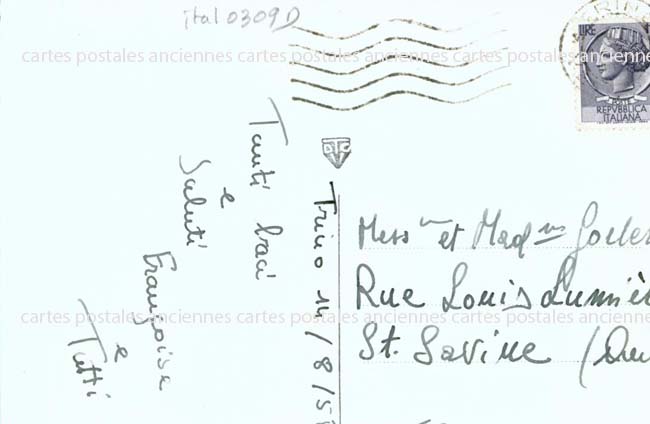 ital 0309D
cartes postales anciennes cartes postales anciennes cartes postales anciennes
LIRE
POSTE
REPVBBLICA
ITALIANA
Trino 14/8/5
Tanti baci
e
Saluti
Françoise
e
Tutti
et
Rue Louis Lumiè
St. Savine
cartes postales anciennes cartes postales anciennes cartes postales anciennes